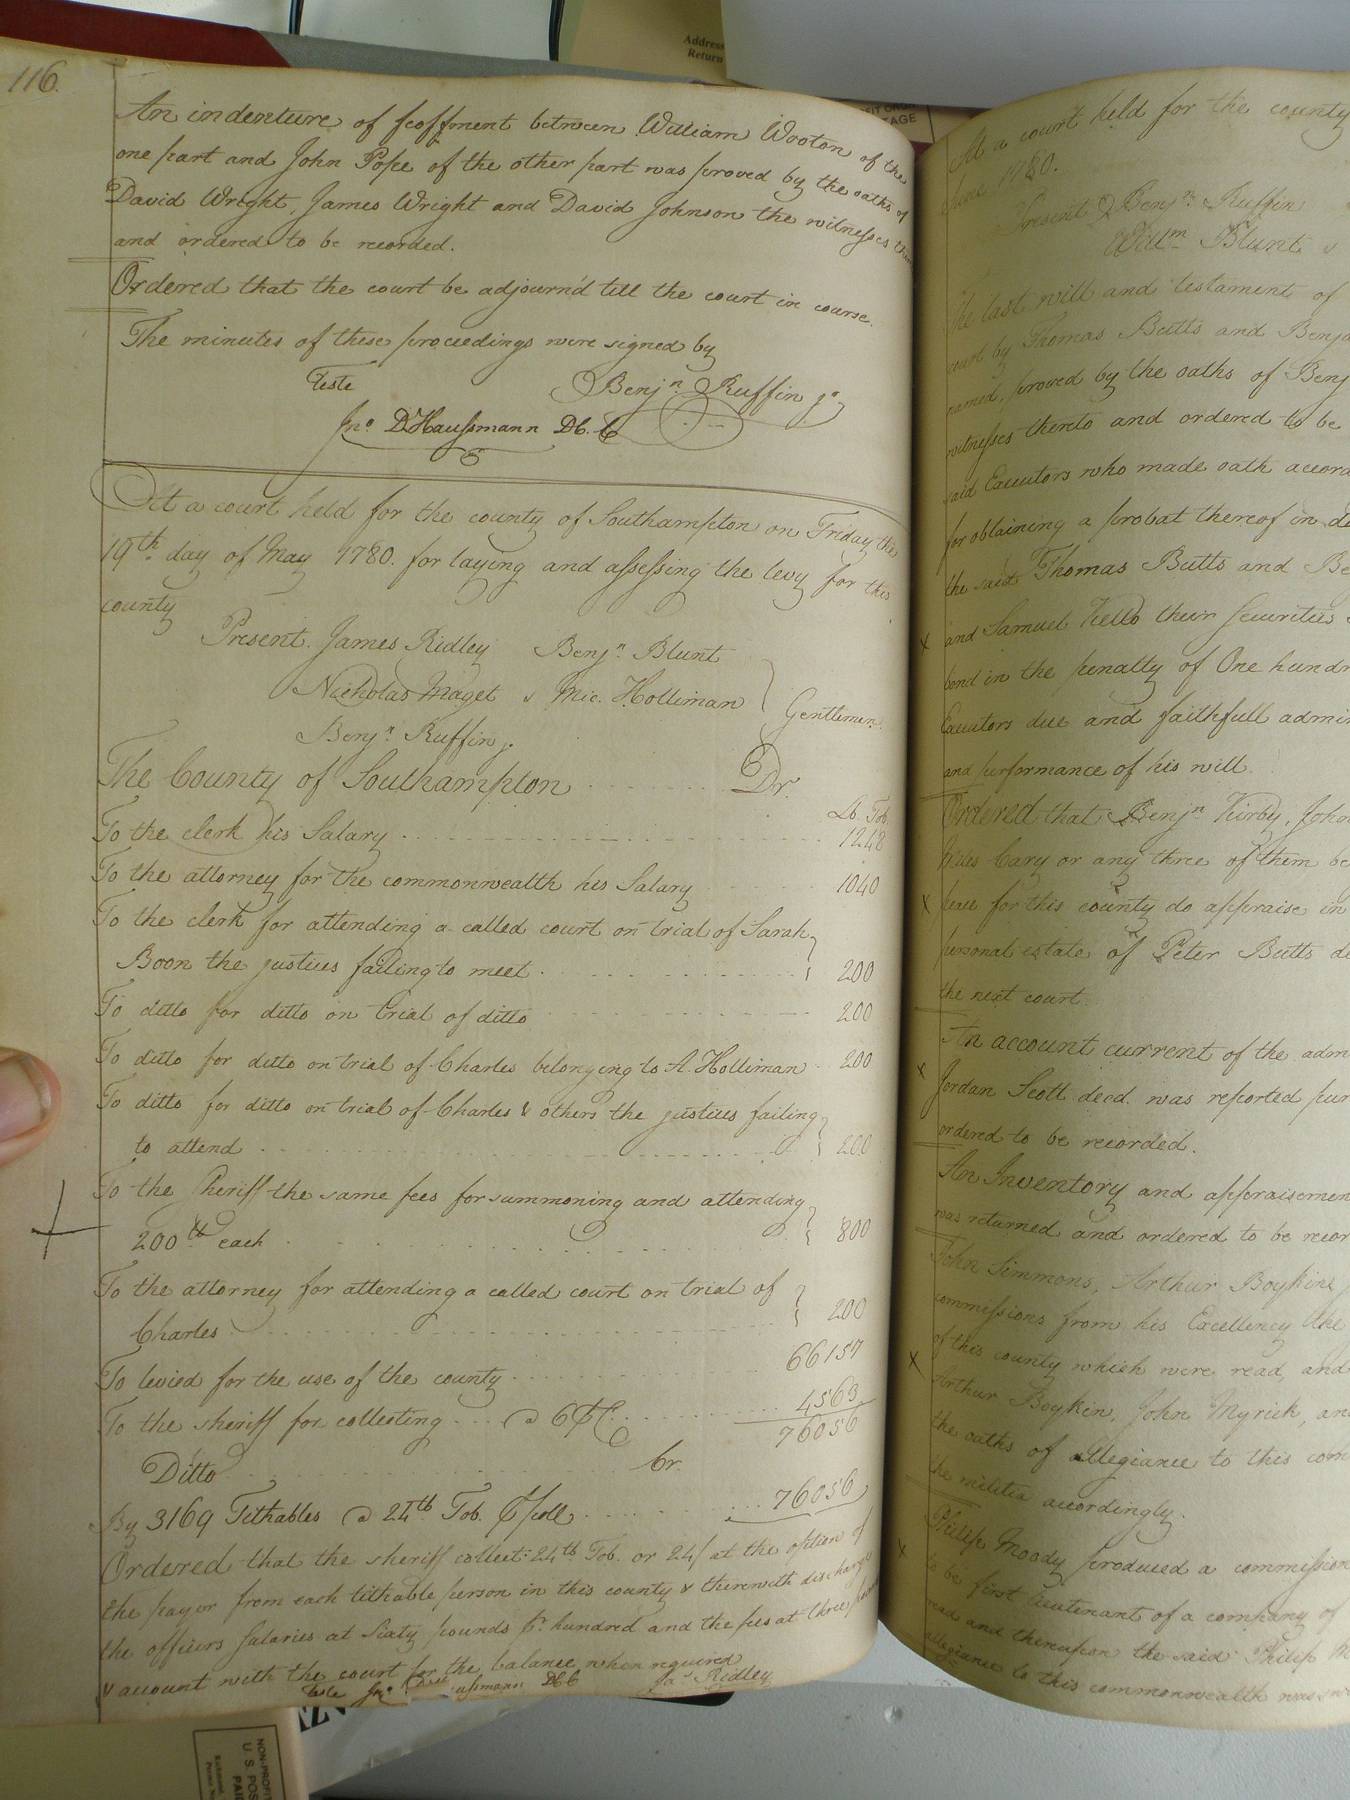 116.
An indenture of feoffment between William Wooton of the
one part and John Pope of the other part was proved by the oaths of
David Wright, James Wright and David Johnson the witnesses
and ordered to be recorded.
Ordered that the court be adjourn'd till the court in course.
The minutes of these proceedings were signed by
Teste Benjn Ruffin jr
Jno D'Haussmann D C. C
At a court held for the county of Southampton on Friday the
19th day of May 1780. for laying and assessing the levy for this
county
Present. James Ridley Benjn Blunt
Nicholas Maget & Mic. Holliman Gentlemen
Benjn Ruffin jr
The County of Southampton Dr.
Lb. Tob.
To the clerk his Salary 1248
To the attorney for the commonwealth his Salary 1040
To the clerk for attending a called court on trial of Sarah
Boon the justices failing to meet 200
To ditto for ditto on trial of ditto 200
To ditto for ditto on trial of Charles belonging to A. Holliman 200
To ditto for ditto on trial of Charles & others the justices failing
to attend 200
To the Sheriff the same fees for summoning and attending
200 lb each 800
To the attorney for attending a called court on trial of
Charles 200
To levied for the use of the county 66157
To the sheriff for collecting @ 6 PC 4563
76056
Ditto Cr.
By 3169 Tithables @ 24lb Tob. P poll 76056
Ordered that the sheriff collect 24lb Tob. or 24/ at the option of
the payor from each tithable person in this county & therewith discharge
the officers salaries at Sixty pounds pr hundred and the fees at three
& account with the court for the balance when required
Teste Jno ussmann DCC Jas Ridley
At a court held for the county
June 1780.
Present Benjn Ruffin
Willm Blunt
The last will and testament of
court by Thomas Butts and Benja
named, proved by the oaths of Benj
witnesses thereto and ordered to be
said Executors who made oath accord
for obtaining a probat thereof in
the said Thomas Butts and Be
and Samuel Kello their Securities
bond in the penalty of One hund
Executors due and faithfull admin
and performance of his will.
Ordered that Benjn Kirby, John
Miles Cary or any three of them be
peace for this county do appraise in
personal estate of Peter Butts de
the next court.
An account current of the adm
Jordan Scott decd. was reported pur
ordered to be recorded.
An Inventory and appraisemen
was returned and ordered to be recor
John Simmons, Arthur Boykin,
commissions from his Excellency the
of this county which were read, and
Arthur Boykin, John Myrick, an
the oaths of allegiance to this com
the militia accordingly.
Philip Moody produced a commission
to be first lieutenant of a company of
read and thereupon the said Philip M
allegiance to this commonwealth was
Address
Return
NON-PROFIT
U S POS
PAID